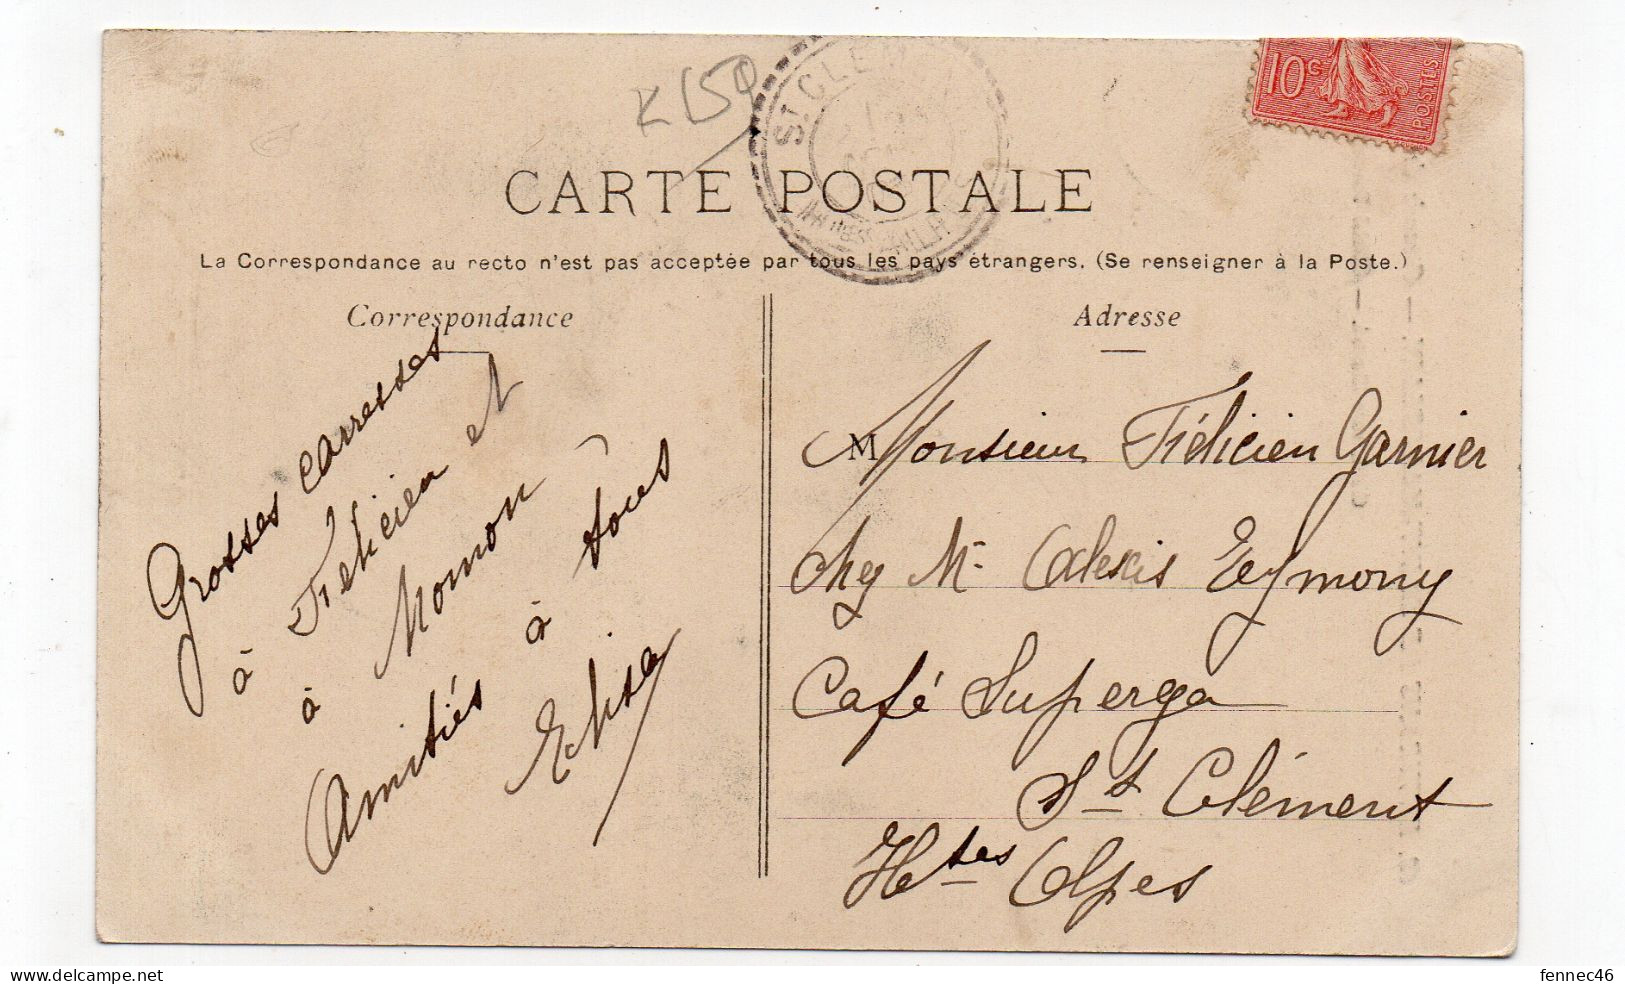 K 159
ST CLEM
10c
POSTES
CARTE POSTALE
La Correspondance au recto n'est pas acceptée par tous les pays étrangers. (Se renseigner à la Poste.)
Correspondance
Grosses carresses
à Félicien et
à Momon
Amitiés à tous
Elisa
Adresse
M Monsieur Félicien Garnier
chez Mr Alexis Eymony
Café Superga
St Clément
Htes Alpes
delcampe.net
fennec46